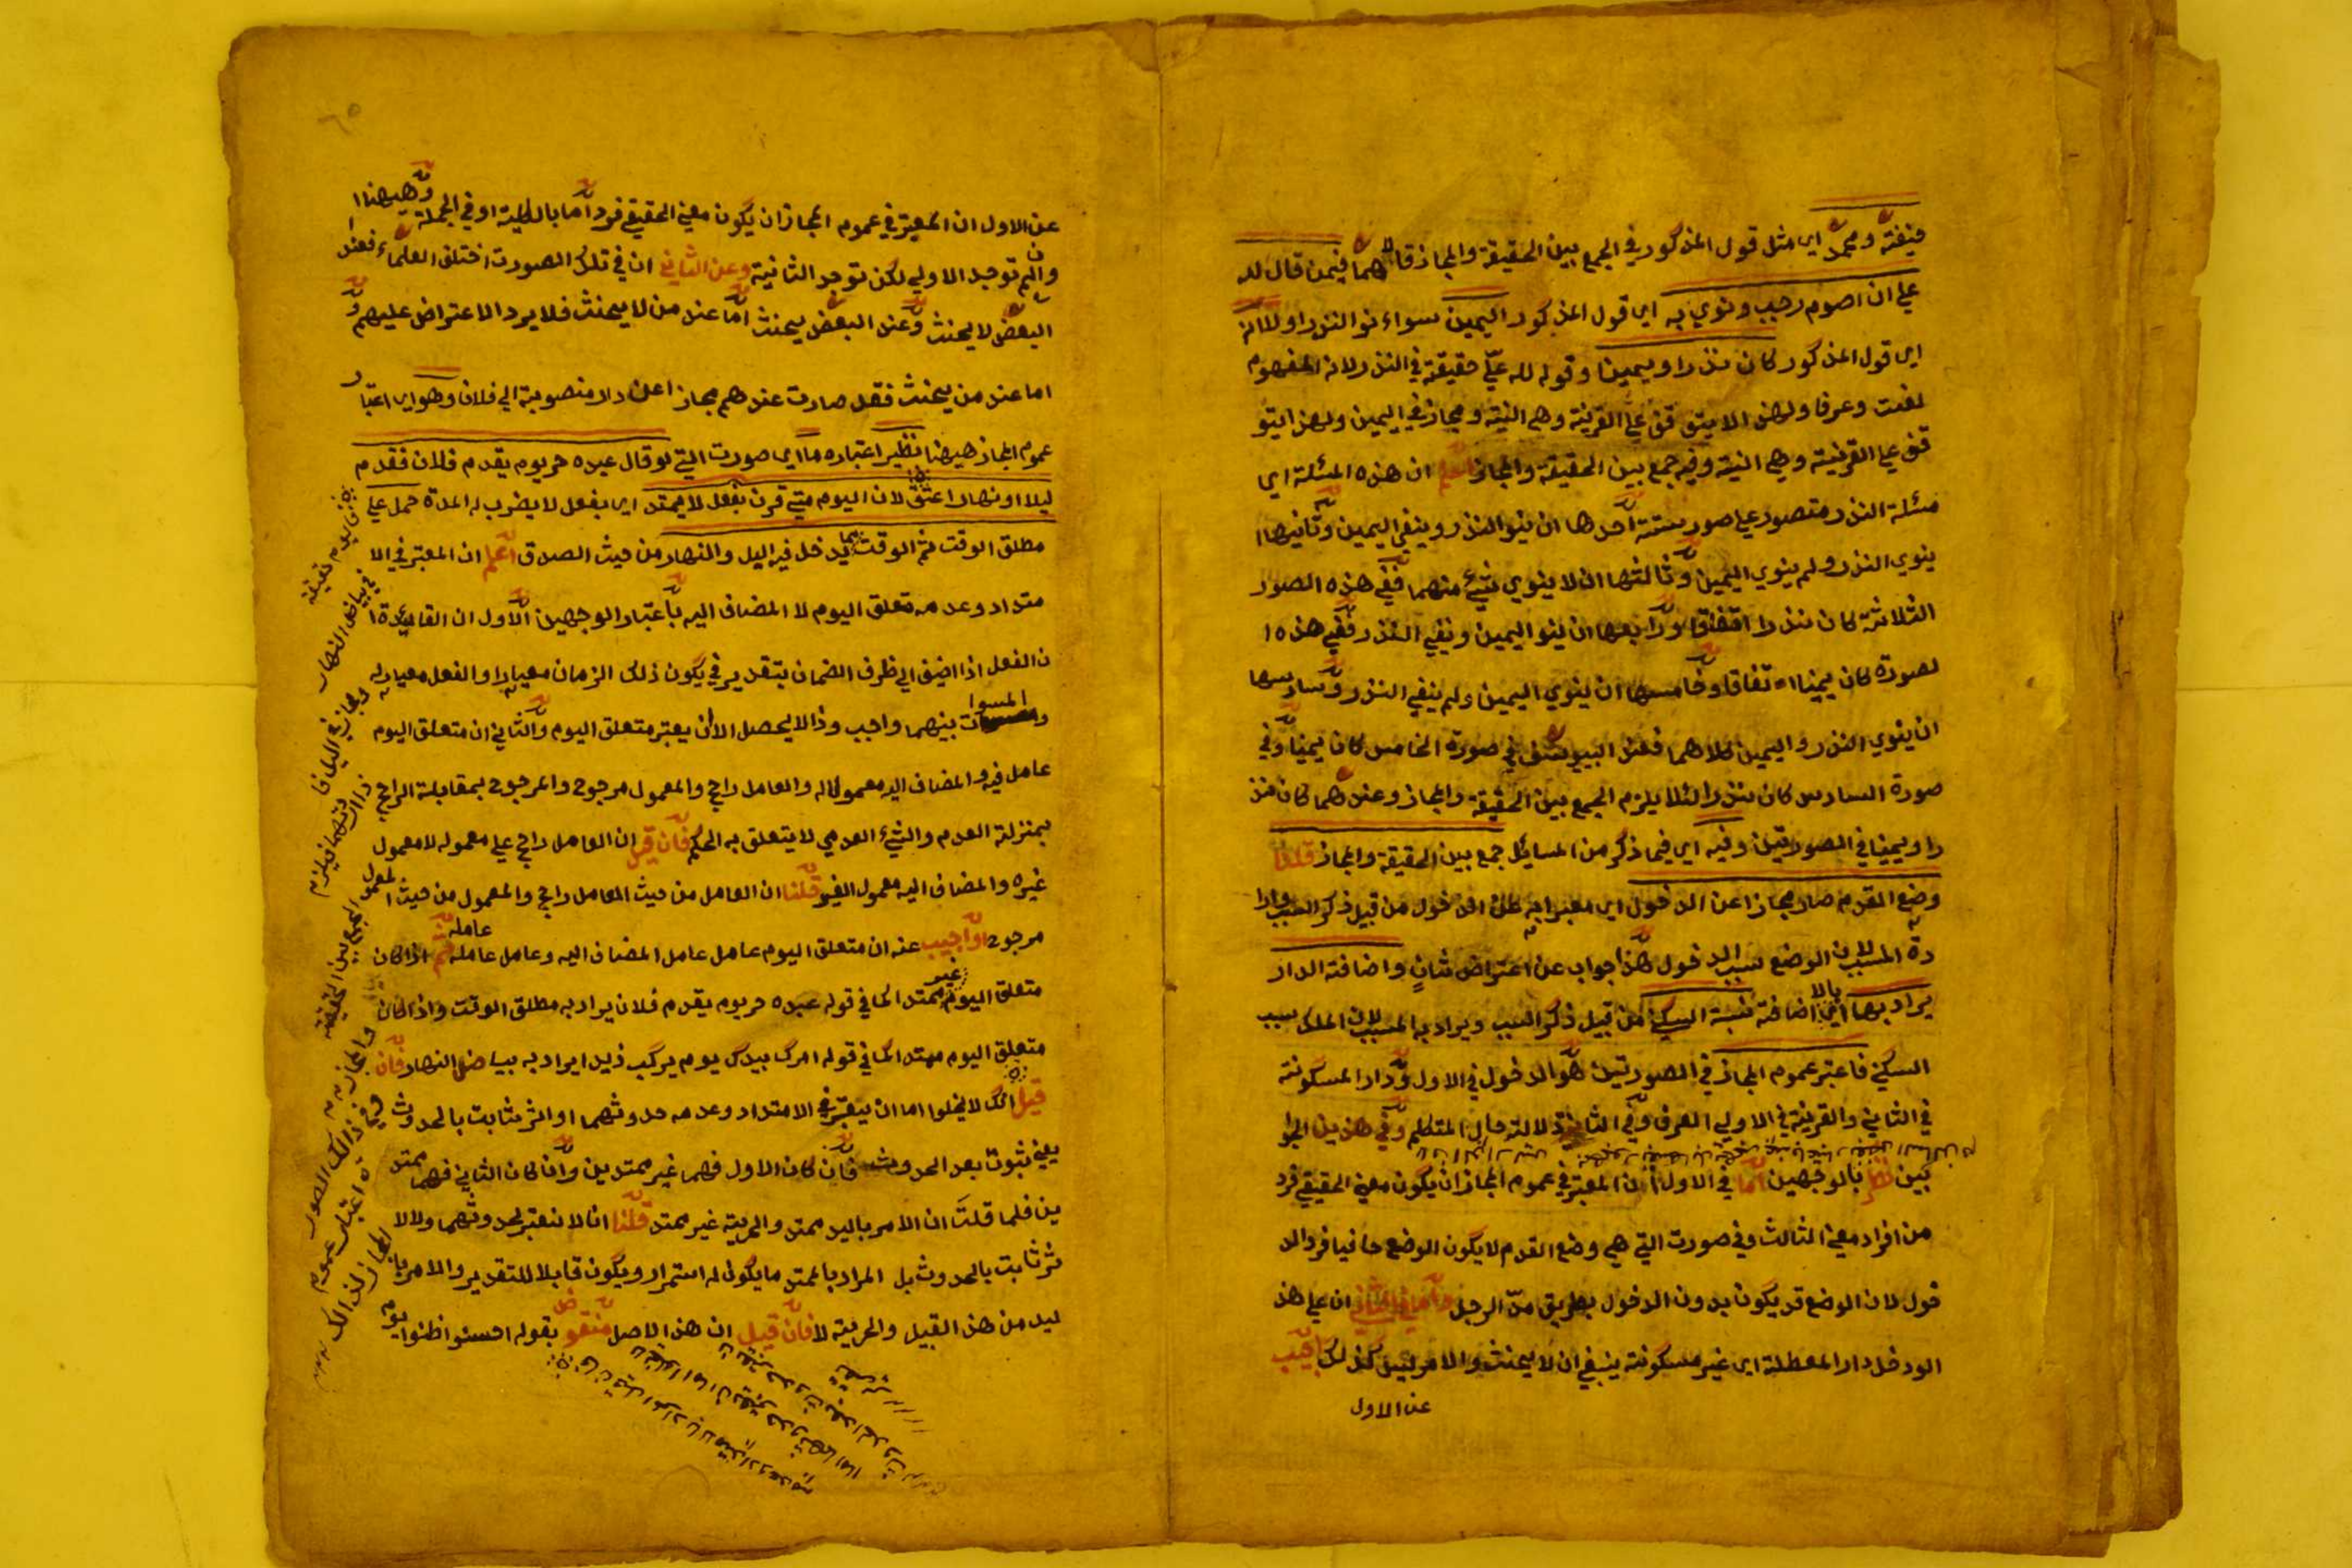 حنيفة ومحمد اي مثل قول المذكور في الجمع بين الحقيقة والمجاز قالاهما فيمن قال لله
علي ان اصوم رجب ونوي به اي قول المذكور اليمين سواء نوا النذر او لا انه
اي قول المذكور كان نذرا ويمينا وقوله لله عليّ حقيقة في النذر لانه المفهوم
لغت وعرفا ولهذا لا يتوقف علي القرينة وهي النية ومجاز في اليمين ولهذا يتو
قف علي القرينة وهي النية وفيه جمع بين الحقيقة والمجاز اعلم ان هذه المسئلة اي
مسئلة النذر متصور علي صور ستة احدها ان ينوا النذر وينفي اليمين وثانيها ا
ينوي النذر ولم ينوي اليمين وثالثها ان لا ينوي شيئ منهما ففي هذه الصور
الثلاثة كان نذرا اتفاقا ورابعها ان ينوا اليمين ونفي النذر ففي هذه ا
لصورة كان يمينا اتفاقا وخامسها ان ينوي اليمين ولم ينفي النذر وسادسها
ان ينوي النذر واليمين كلاهما فعند ابييوسف في صورة الخامس كان يمينا وفي
صورة السادس كان نذرا لئلا يلزم الجمع بين الحقيقة والمجاز وعندهما كان نذ
را ويمينا في الصورتين وفيه اي فيما ذكر من المسايل جمع بين الحقيقة والمجاز قلنا
وضع القدم صار مجازا عن الدخول اي معبرا به عن الدخول من قبيل ذكر السبب وارا
دة المسبب لان الوضع سبب الدخول هذا جواب عن اعتراض ثان واضافة الدار
يراد بها اي بالاضافة نسبة السكني من قبيل ذكر السبب ويراد به المسبب لان الملك سبب
السكني فاعتبر عموم المجاز في الصورتين هو الدخول في الاول ودار المسكونة
في الثاني والقرينة في الاولي العرف وفي الثانية دلالة حال المتكلم وفي هذين الجوا
بين نظر بالوجهين اما في الاول ان المعتبر في عموم المجاز ان يكون معني الحقيقي فرد
من افراد معني الثالث وفي صورت التي هي وضع القدم لا يكون الوضع حافيا فرد الد
خول لان الوضع قد يكون بدون الدخول بطريق مدّ الرجل واما في الثاني ان علي هذ
الو دخل دار المعطلة اي غير مسكونة ينبغي ان لا يحنث والامر ليس كذلك اجيب
عن الاول
عن الاول ان المعتبر في عموم المجاز ان يكون معني الحقيقي فرد اما بالكلية او في الجملة وههنا ا
وان لم توجد الاولي لكن توجد الثانية وعن الثاني ان في تلك الصورت اختلف العلماء فعند
البعض لا يحنث وعند البعض يحنث اما عند من لا يحنث فلا يرد الاعتراض عليهم و
اما عند من يحنث فقد صارت عندهم مجازا عن دار منصوبة الي فلان وهو اي اعتبار
عموم المجاز ههنا نظير اعتباره ما اي صورت التي لو قال عبده حر يوم يقدم فلان فقدم
ليلا او نهارا عتق لان اليوم متي قرن بفعل لا يمتد اي بفعل لا يضرب له المدة حمل علي
مطلق الوقت ثم الوقت مما يدخل فيه اليل والنهار من حيث الصدق اعلم ان المعتبر في الا
متداد وعدمه متعلق اليوم لا المضاف اليه باعتبار الوجهين الاول ان القاعدة ا
ن الفعل اذا اضيف الي ظرف الضمان بتقدير في يكون ذلك الزمان معيارا والفعل معيار له
والمسوات بينهما واجب وذا لا يحصل الا ان يعتبر متعلق اليوم والثاني ان متعلق اليوم
عامل فيه والمضاف اليه معمول له والعامل راجح والمعمول مرجوح والمرجوح بمقابلة الراجح
بمنزلة العدم والشيئ العدمي لا يتعلق به الحكم فان قيل ان العامل راجح علي معموله لا معمول
غيره والمضاف اليه معمول الغير قلنا ان العامل من حيث العامل راجح والمعمول من حيث المعمول
مرجوح او اجيب عنه ان متعلق اليوم عامل عامل المضاف اليه وعامل عامله عامله ثم اذا كان
متعلق اليوم غير ممتد كما في قوله عبده حر يوم يقدم فلان يراد به مطلق الوقت واذا كان
متعلق اليوم ممتد كما في قوله امرك بيدك يوم يركب زيد ايراد به بياض النهار فان
قيل انك لا يخلوا اما ان يعتبر في الامتداد وعدمه حدوثهما او اثر ثابت بالحدوث
يعني ثبوت بعد الحدوث فان كان الاول فهما غير ممتدين وان كان الثاني فهما ممتد
ين فلما قلت ان الامر باليد ممتد والحرية غير ممتد قلنا انا لا نعتبر لحدوثهما ولا لا
ثر ثابت بالحدوث بل المراد بالممتد ما يكون له استمرار ويكون قابلا للتقدير والامر با
ليد من هذ القبيل والحرية لا فان قيل ان هذ الاصل منقوض بقوله احسنوا ظنوا يوم